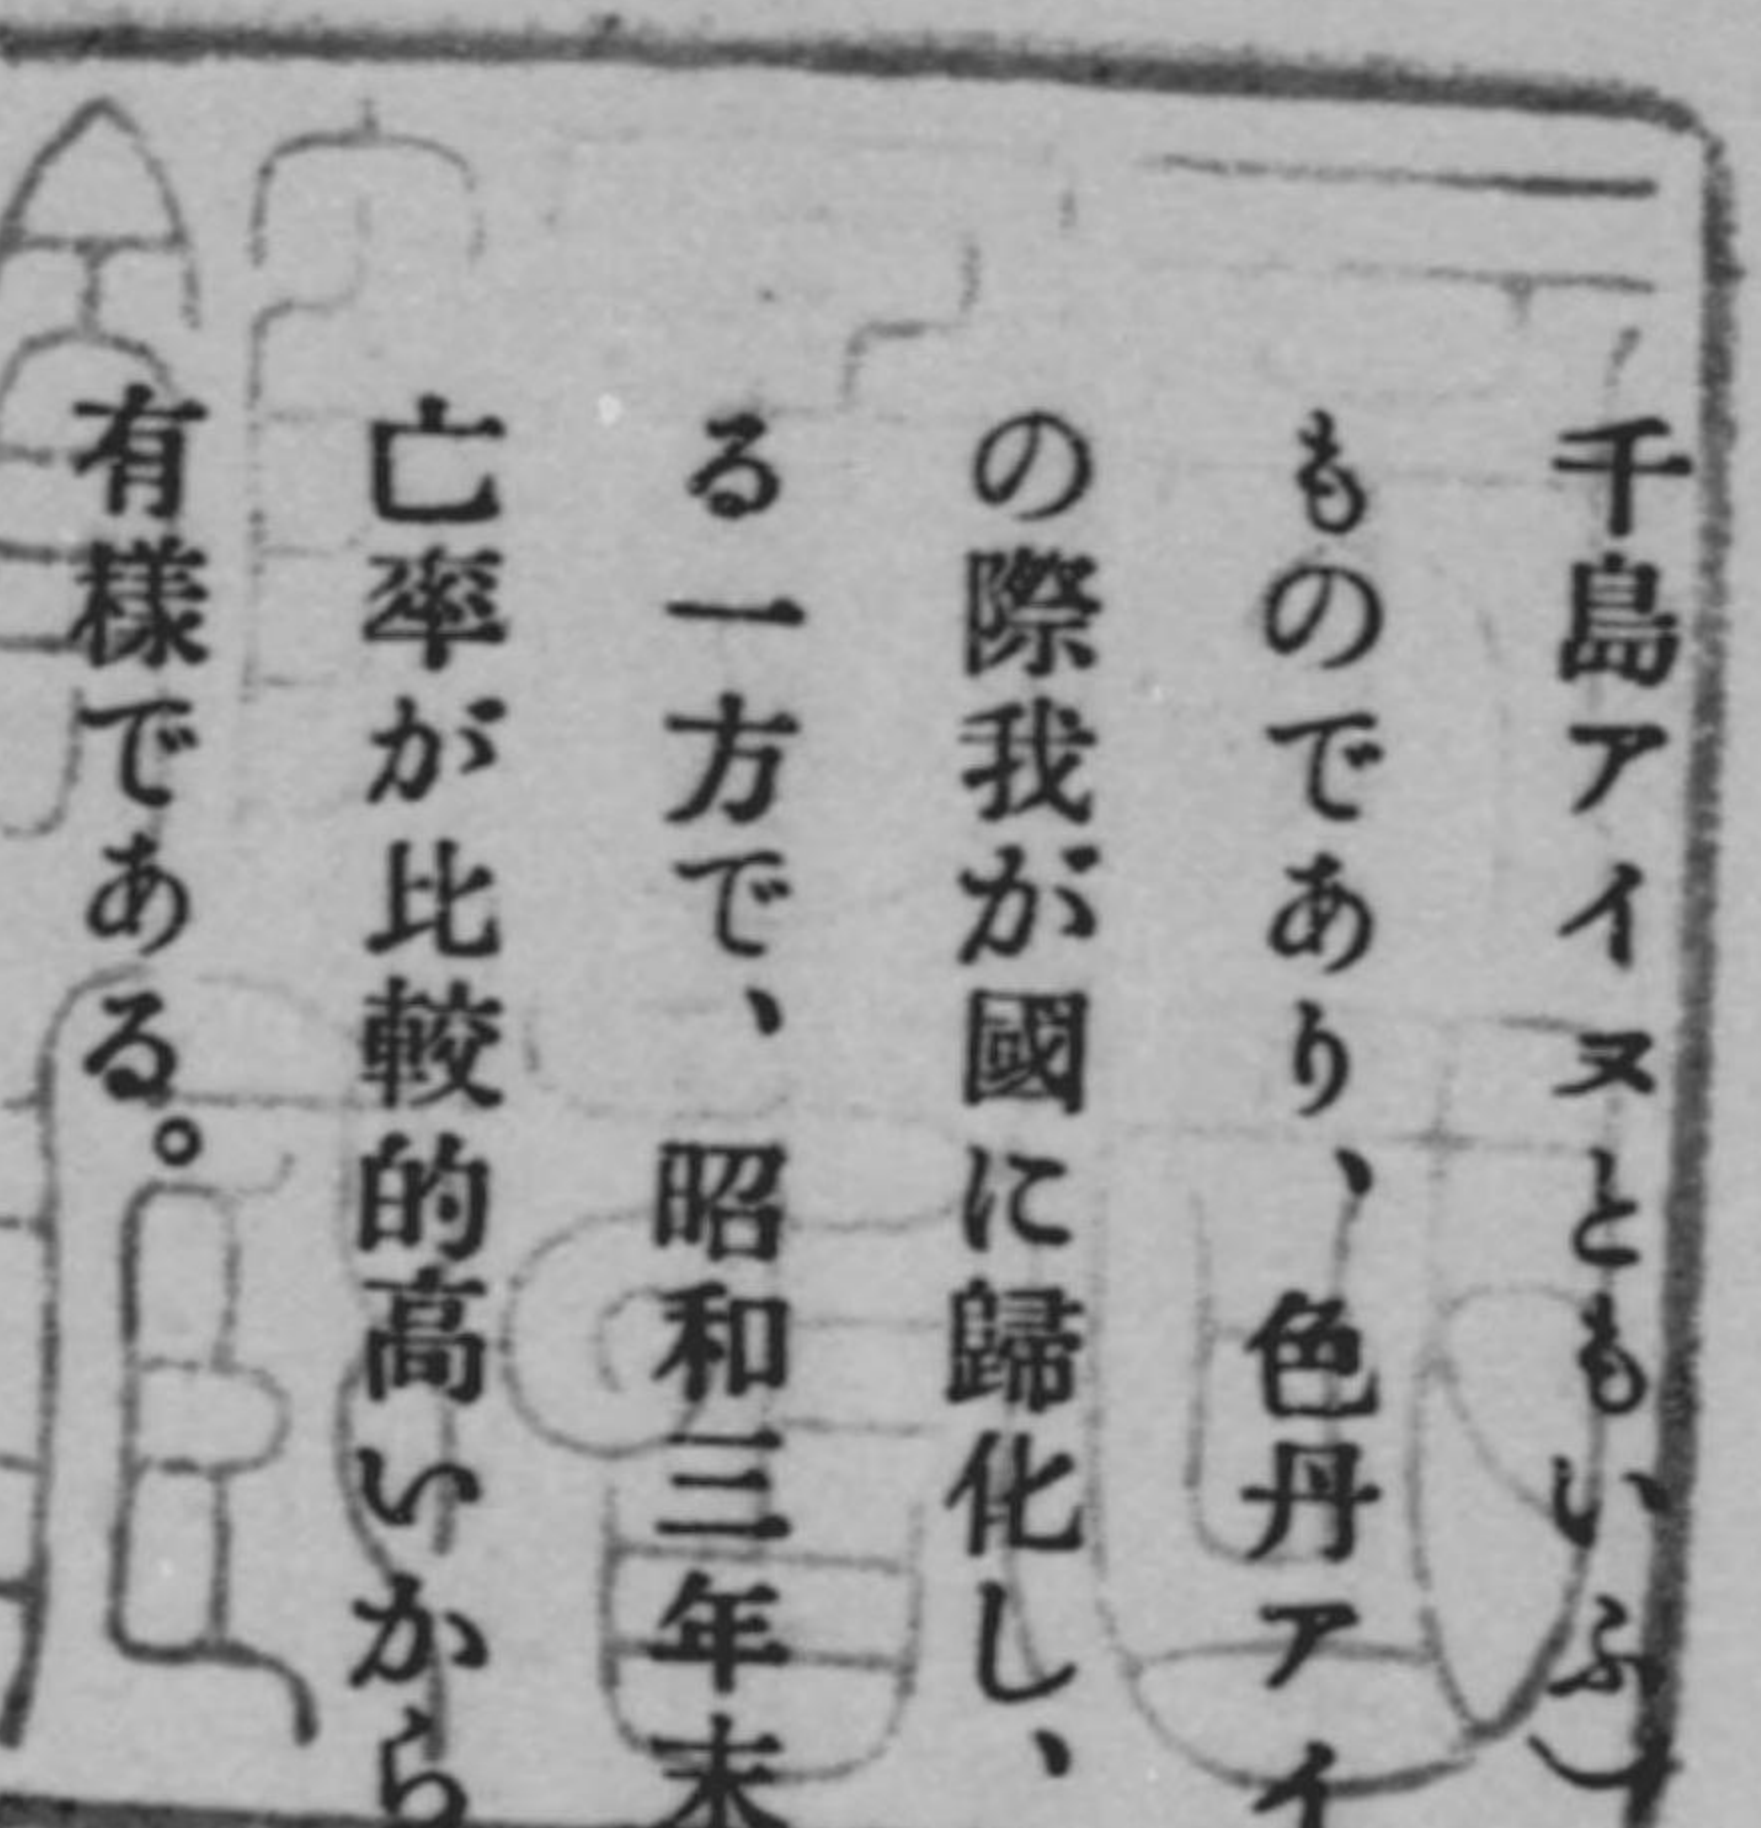 千島アイヌともいふ)
ものであり、色丹アイ
の際我が國に歸化し、
る一方で、昭和三年末
亡率が比較的高いから
有樣である。